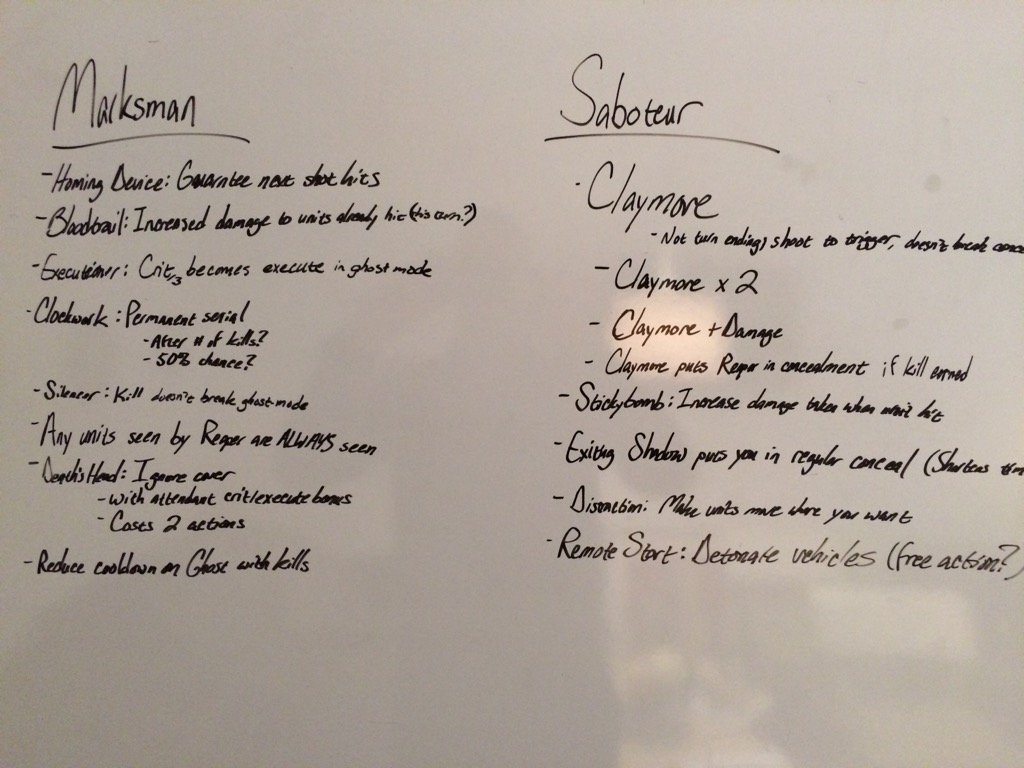 Marksman
- Homing Device: Guarantee next shot hits
- Bloodtrail: Increased damage to units already hit (this turn?)
- Executioner: Crit/3 becomes execute in ghost mode
- Clockwork: Permanent serial
- After # of kills?
- 50% chance?
- Silencer: Kill doesn't break ghost mode
- Any units seen by Reaper are ALWAYS seen
- Death's Head: Ignore cover
- With attendant crit/execute bonus
- Costs 2 actions
- Reduce cooldown on Ghost with kills
Saboteur
- Claymore
- Not turn ending, shoot to trigger, doesn't break conce
- Claymore x 2
- Claymore + Damage
- Claymore puts Reaper in concealment if kill earned
- Stickybomb: Increase damage taken when unit hit
- Exiting Shadow puts you in regular conceal (Shortens tim
- Distraction: Make units move where you want
- Remote Start: Detonate vehicles (free action?)